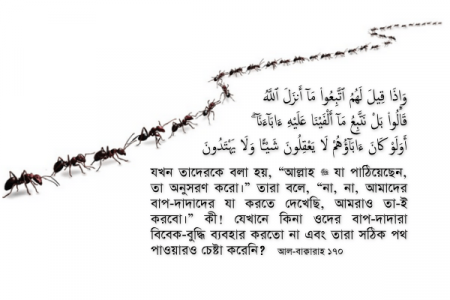 وَإِذَا قِيلَ لَهُمُ ٱتَّبِعُوا۟ مَآ أَنزَلَ ٱللَّهُ
قَالُوا۟ بَلْ نَتَّبِعُ مَآ أَلْفَيْنَا عَلَيْهِ ءَابَآءَنَآ ۗ
أَوَلَوْ كَانَ ءَابَآؤُهُمْ لَا يَعْقِلُونَ شَيْـًٔا وَلَا يَهْتَدُونَ
যখন তাদেরকে বলা হয়, “আল্লাহ ﷻ যা পাঠিয়েছেন,
তা অনুসরণ করো।” তারা বলে, “না, না, আমাদের
বাপ-দাদাদের যা করতে দেখেছি, আমরাও তা-ই
করবো।” কী! যেখানে কিনা ওদের বাপ-দাদারা
বিবেক-বুদ্ধি ব্যবহার করতো না এবং তারা সঠিক পথ
পাওয়ারও চেষ্টা করেনি? আল-বাক্বারাহ ১৭০